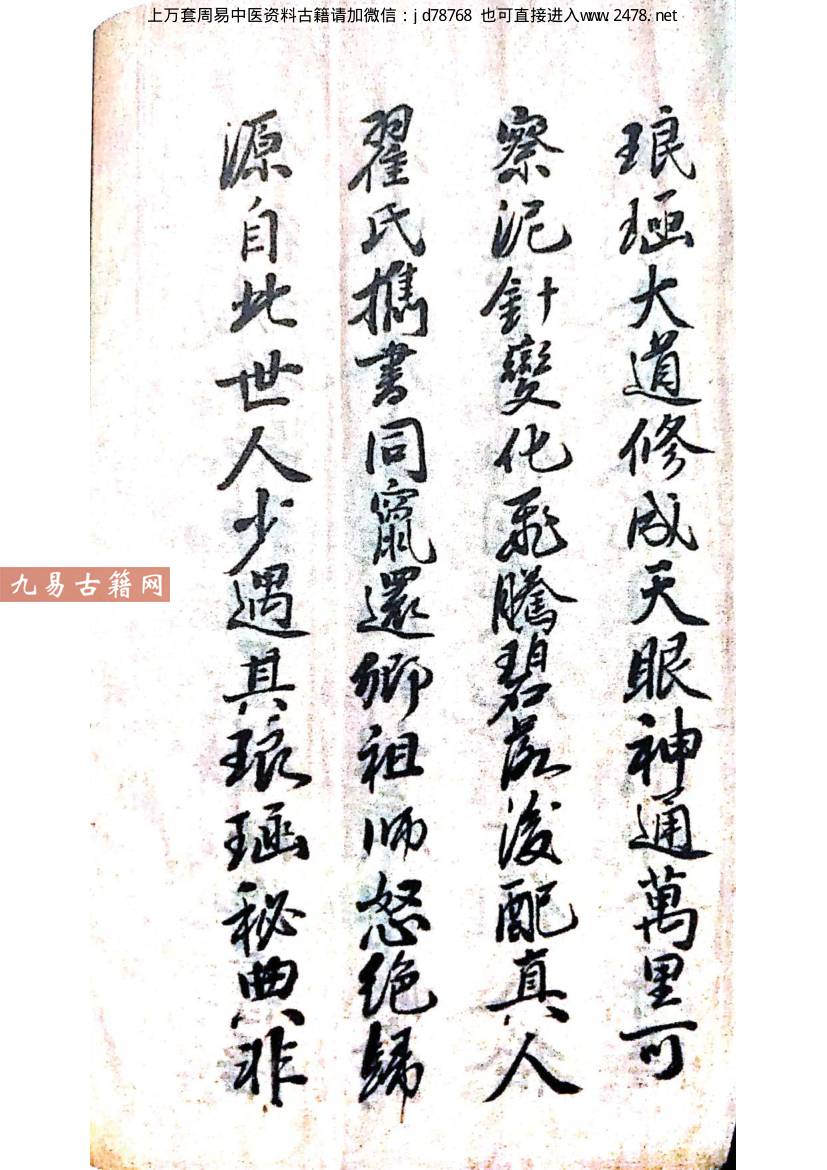 上万套周易中医资料古籍请加微信：jd78768 也可直接进入www.2478.net
琅琊大道修成天眼神通萬里可
察泥針變化飛騰碧落後配真人
翟氏攜書同竄還鄉祖师怒绝歸
源自此世人少遇其琅琊秘典非
九易古籍网